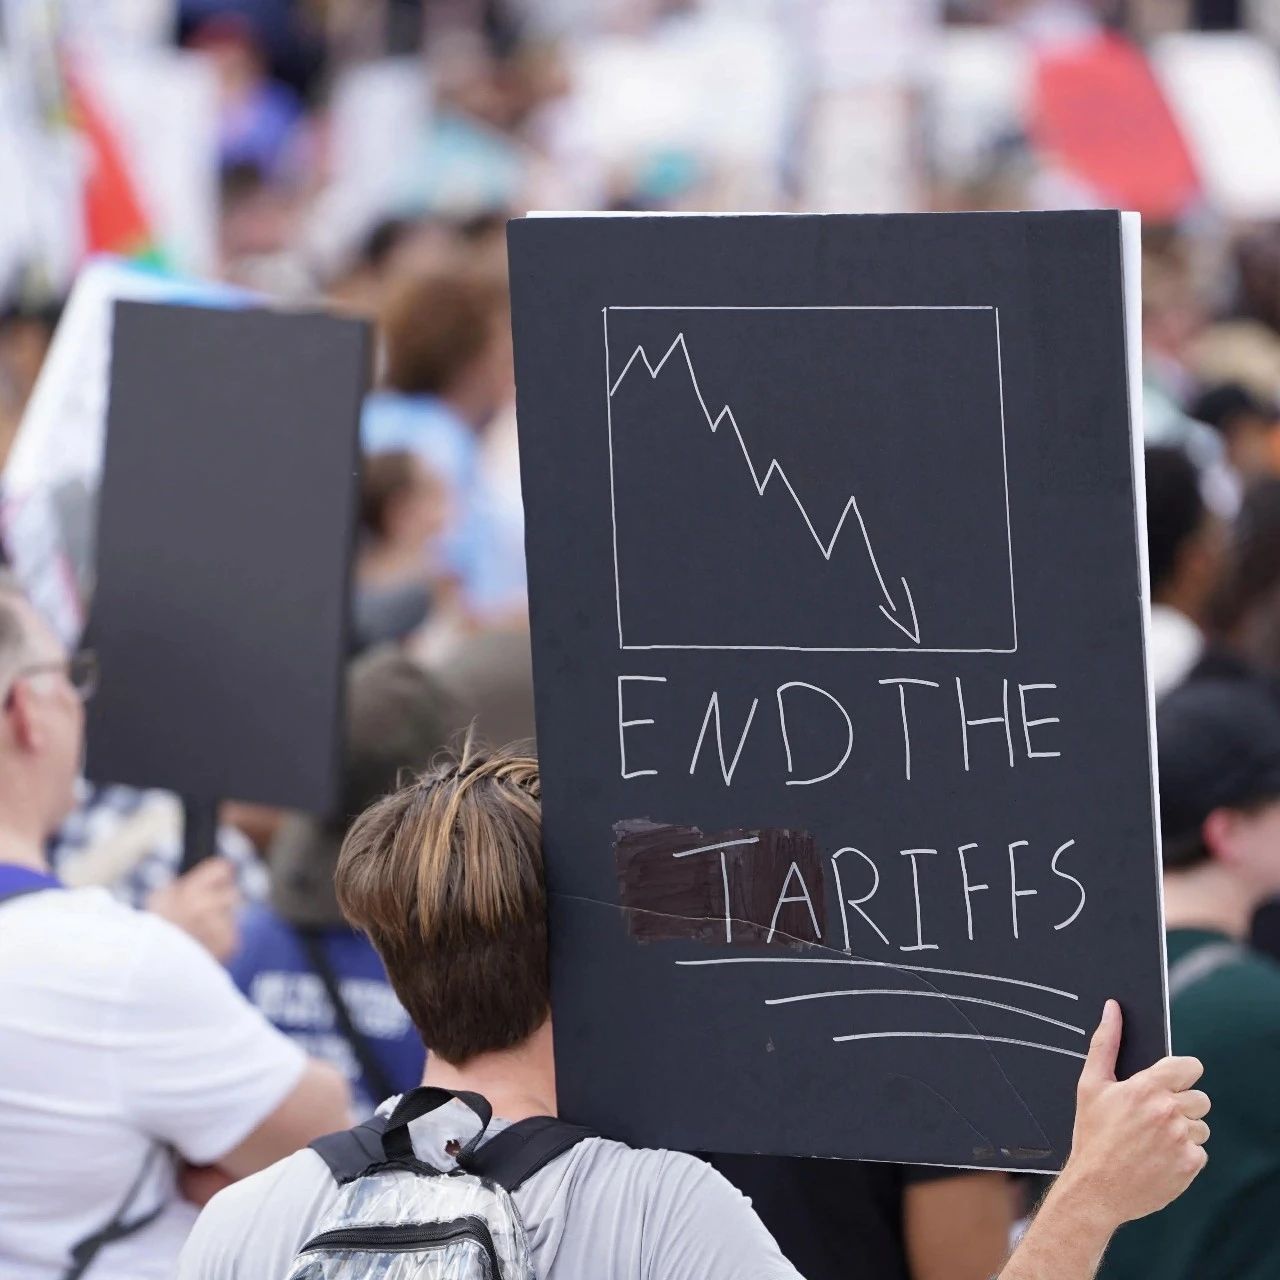 END THE
TARIFFS